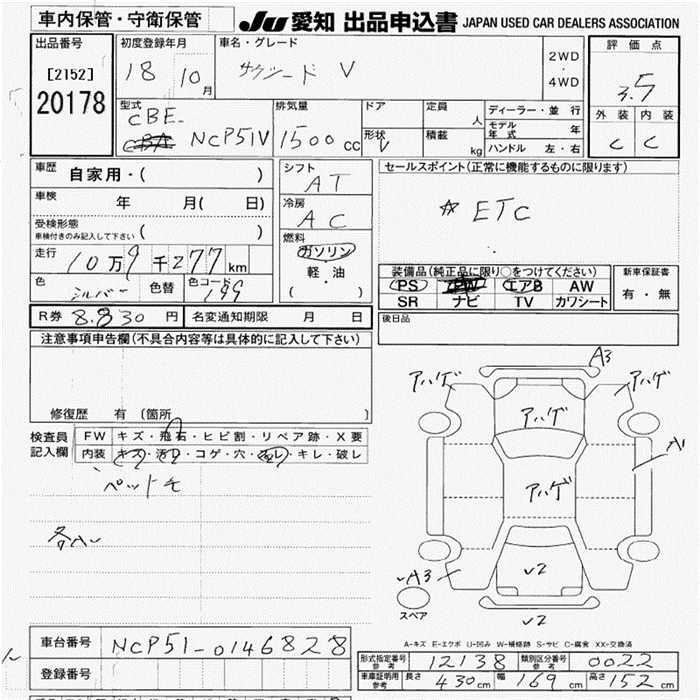 車内保管・守衛保管
JU 愛知 出品申込書 JAPAN USED CAR DEALERS ASSOCIATION
出品番号
[2152]
20178
初度登録年月
18 10月
車名・グレード
サクシード V
2WD
・
4WD
評価点
3.5
外装 内装
C C
型式
CBE-
CBA NCP51V
排気量
1500 CC
ドア
形状
V
定員
人
積載
kg
ディーラー・並行
モデル年式 年
ハンドル 左・右
車歴
自家用・( )
車検
年 月( 日)
受検形態
車検付きのみ記入して下さい ( )
走行
10万9千277km
色
シルバー
色替
色コード
199
シフト
AT
冷房
AC
燃料
ガソリン
軽・油
( )
セールスポイント(正常に機能するものに限ります)
☆ ETC
装備品(純正品に限り○をつけてください)
PS PW エアB AW
SR ナビ TV カワシート
新車保証書
有・無
R券 8.830 円
名変通知期限 月 日
後日品
注意事項申告欄(不具合内容等は具体的に記入して下さい)
修復歴 有 〔箇所 〕
検査員記入欄
FW キズ・飛石・ヒビ割・リペア跡・X要
内装 キズ・汚レ・コゲ・穴・・キレ・破レ
各A
A3
アハゲ
アハゲ
アハゲ
A1
アハゲ
A3
√2
√2
スペア
A-キズ E-エクボ U-凹み W-補修跡 S-サビ C-腐食 XX-交換済
車台番号
NCP51-0146828
登録番号
形式指定番号 参考 12138
類別区分番号 参考 0022
車庫証明用 参考 長さ 430cm 幅 169cm 高さ 152cm